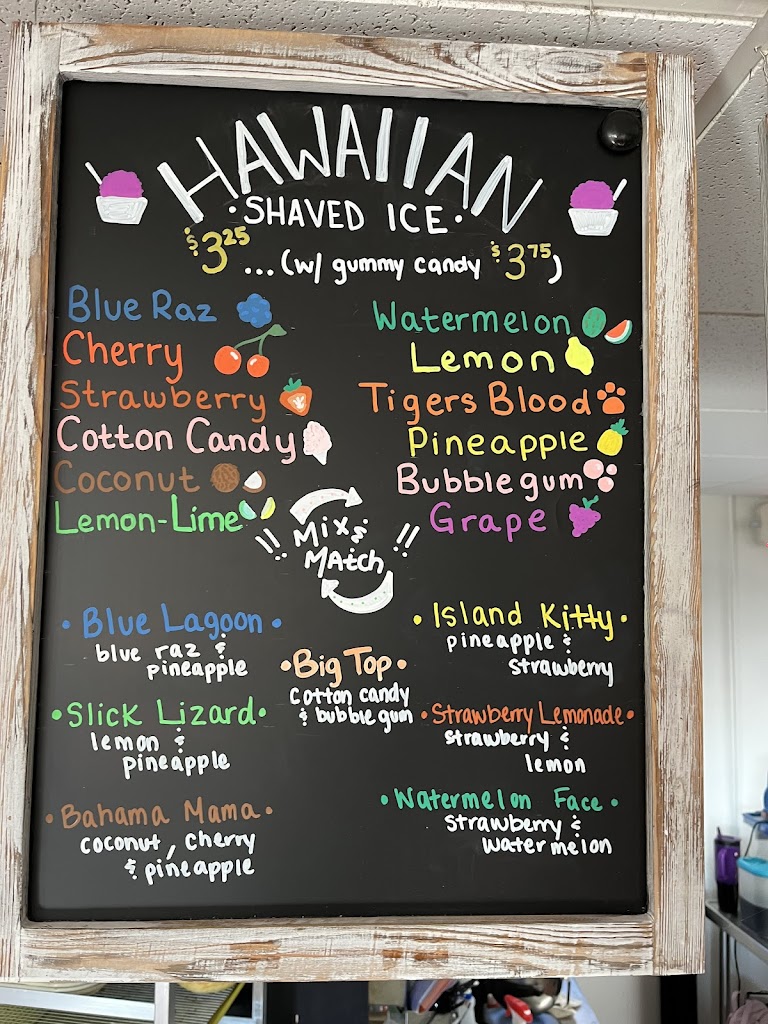 HAWAIIAN
• SHAVED ICE •
$3.25
...(w/ gummy candy $3.75)
Blue Raz
Cherry
Strawberry
Cotton Candy
Coconut
Lemon-Lime
Watermelon
Lemon
Tigers Blood
Pineapple
Bubblegum
Grape
!! Mix &
Match !!
• Blue Lagoon •
blue raz &
pineapple
• Slick Lizard •
lemon &
pineapple
• Bahama Mama •
coconut, cherry
& pineapple
• Big Top •
cotton candy
& bubblegum
• Island Kitty •
pineapple &
strawberry
• Strawberry Lemonade •
strawberry &
lemon
• Watermelon Face •
strawberry &
watermelon